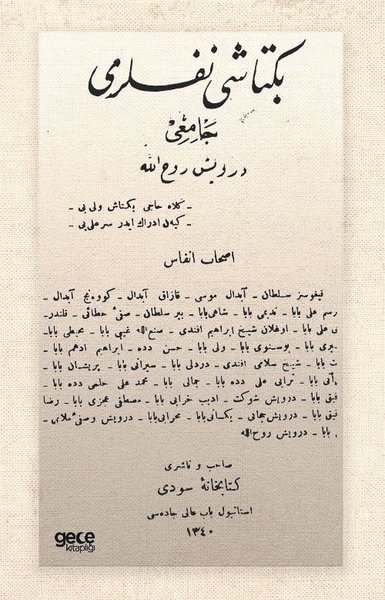 بكتاشی نفسلری
جامعی
درویش روح الله
ـ كلاه حاجی بكتاش ولی بی ـ
ـ كیه‌ن ادراك ایدر سر علی بی ـ
اصحاب انفاس
قیغوسز سلطان ـ آبدال موسی ـ قازاق آبدال ـ كووه‌نچ آبدال ـ
رسم علی بابا ـ ندیمی بابا ـ شاهی بابا ـ پیر سلطان ـ صفی ـ خطائی ـ قلندر ـ
ی علی بابا ـ اوغلان شیخ ابراهیم افندی ـ صنع الله غیبی بابا ـ محیطی بابا ـ
یری بابا ـ بوسنوی بابا ـ ولی بابا ـ حسن دده ـ ابراهیم ادهم بابا ـ
ت بابا ـ شیخ سلامی افندی ـ دردلی بابا ـ سیرانی بابا ـ پریشان بابا ـ
انی بابا ـ ترابی علی دده بابا ـ جمالی بابا ـ محمد علی حلمی دده بابا ـ
فیق بابا ـ درویش شوكت ـ ادیب خرابی بابا ـ مصطفی عجزی بابا ـ رضا
فیق بابا ـ درویش جهانی ـ یكسانی بابا ـ محرابی بابا ـ درویش وصفی ملامی ـ
بابا ـ درویش روح الله
صاحب و ناشری
كتابخانهٔ سودی
استانبول باب عالی جاده سی
١٣٤٠
gece
kitaplığı